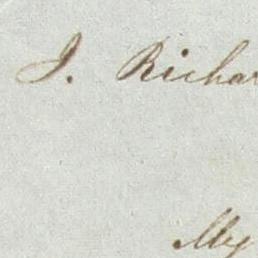 J. Richar
My